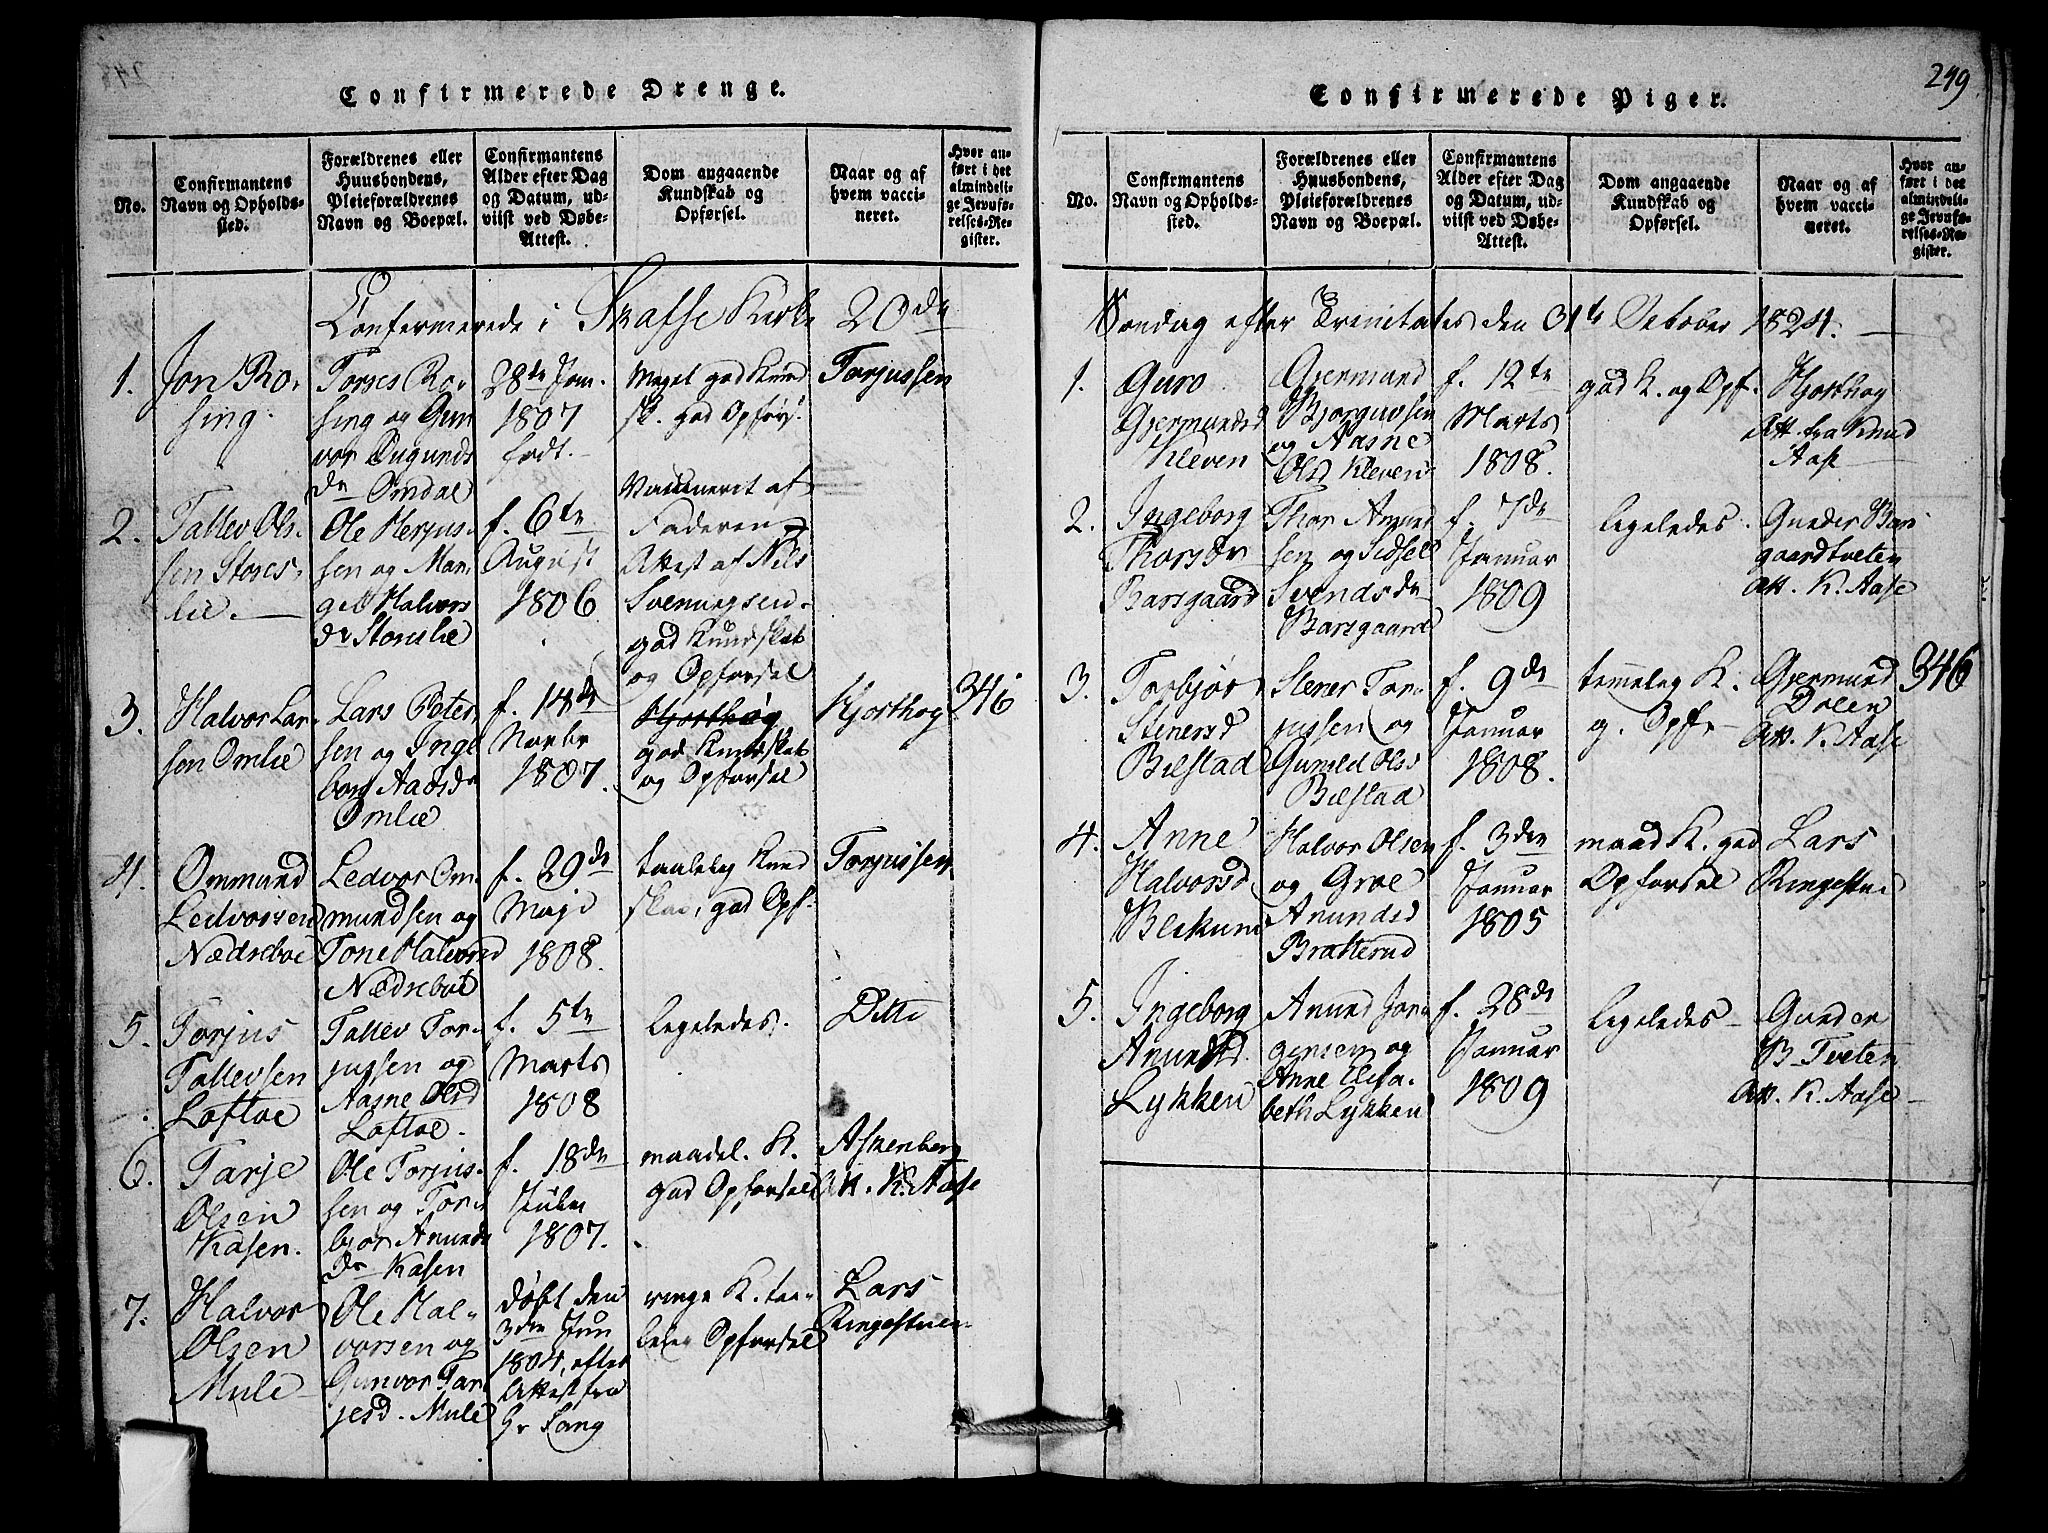 249
Confirmerede Drenge.
No.
Confirmantens
Navn og Opholds-
sted.
Forældrenes eller
Huusbondens,
Pleieforældrenes
Navn og Boepæl.
Confirmantens
Alder efter Dag
og Datum, ud-
viist ved Døbe-
Attest.
Dom angaaende
Kundskab og
Opførsel.
Naar og af
hvem vacci-
neret.
Hvor an-
ført i det
almindeli-
ge Jevnfø-
relses-Re-
gister.
Confermerede i Skafse Kirke 20de
1.
Jon Ro-
sing.
Torjes Ro-
sing og Gun
vor
dr Omdal
28de Jan.
1807
født.
Meget god Kund
sk. god Opførs.
Torjussen
2.
Tallev Ols-
sen Stores-
lie.
Ole Herjus-
sen og Mar-
git Halvors
dr Storeslie
f. 6te
August
1806
Vaccineret af
Faderen
Attest af Nils
Sveningsen.
god Kundskab
og Opforsel
3.
Halvor Lar-
sen Omlie
Lars Peter
sen og Inge
borg Aadsdr
Omlie
f. 14de
Novbr
1807.
Hjorthøg
god Kundskab
og Opforsel
Hjorthog
346
4.
Ommund
Ledvorsen
Nædreboe
Ledvor Om-
mundsen og
Tone Halvorsd
Nædreboe
f. 29de
Maji
1808.
taalelig Kund
skab, god Opf.
Torjussen
5.
Torjus
Tallevsen
Loftoe
Tallev Tor-
jussen og
Aasne Olsd
Loftoe.
f. 5te
Marts
1808
ligeledes.
Ditto
6.
Tarje
Olsen
Kasen.
Ole Torjus-
sen og Tor-
bjor Anunds
dr Kasen
f. 18de
Julii
1807.
maadel. K.
god Opforsel
Askenberg
Att. K. Aase
7.
Halvor
Olsen
Mule
Ole Hal-
vorsen og
Gunvor Tar-
jesd. Mule
døbt den
3die Jun
1804, efter
Attest fra
Hr Lang
ringe K. taa-
lelig Opforsel
Lars
Ringestue
Confirmerede Piger.
No.
Confirmantens
Navn og Opholds-
sted.
Forældrenes eller
Huusbondens,
Pleieforældrenes
Navn og Boepæl.
Confirmantens
Alder efter Dag
og Datum, ud-
viist ved Døbe-
Attest.
Dom angaaende
Kundskab og
Opførsel.
Naar og af
hvem vacci-
neret.
Hvor an-
ført i det
almindeli-
ge Jevnfø-
relses-Re-
gister.
Søndag efter Trinitatis den 31te October 1824.
1.
Guro
Gjermundsd
Kleven
Gjermund
Bjorguvsen
og Aasne
Olsd Kleven
f. 12te
Marts
1808.
god K. og Opf.
Hjorthog
Att. fra Knud
Aase
2.
Ingeborg
Thorsdr
Barsgaard
Thor Anund
sen og Sidsell
Svendsdr
Barsgaard
f. 7de
Januar
1809
ligeledes.
Gunder Bar
gaardtveten
Att. K. Aase
3.
Torbjør
Stenersd
Bilstad
Stener Tor-
jussen og
Gunild Olss
Bilstad
f. 9de
Januar
1808.
temmelig K.
g. Opf.
Gjermund
Dalen
Att. K. Aase
346
4.
Anne
Halvorsd
Blekum
Halvor Olsen
og Groe
Anundsd
Bratterud
f. 3die
Januar
1805
maad K. god
Opforsel
Lars
Ringestue
5.
Ingeborg
Anundsd.
Lykken
Anund Jor-
gensen og
Anne Elisa-
beth Lykken
f. 28de
Januar
1809
ligeledes
Gunder
B Tveten
Att. K. Aase